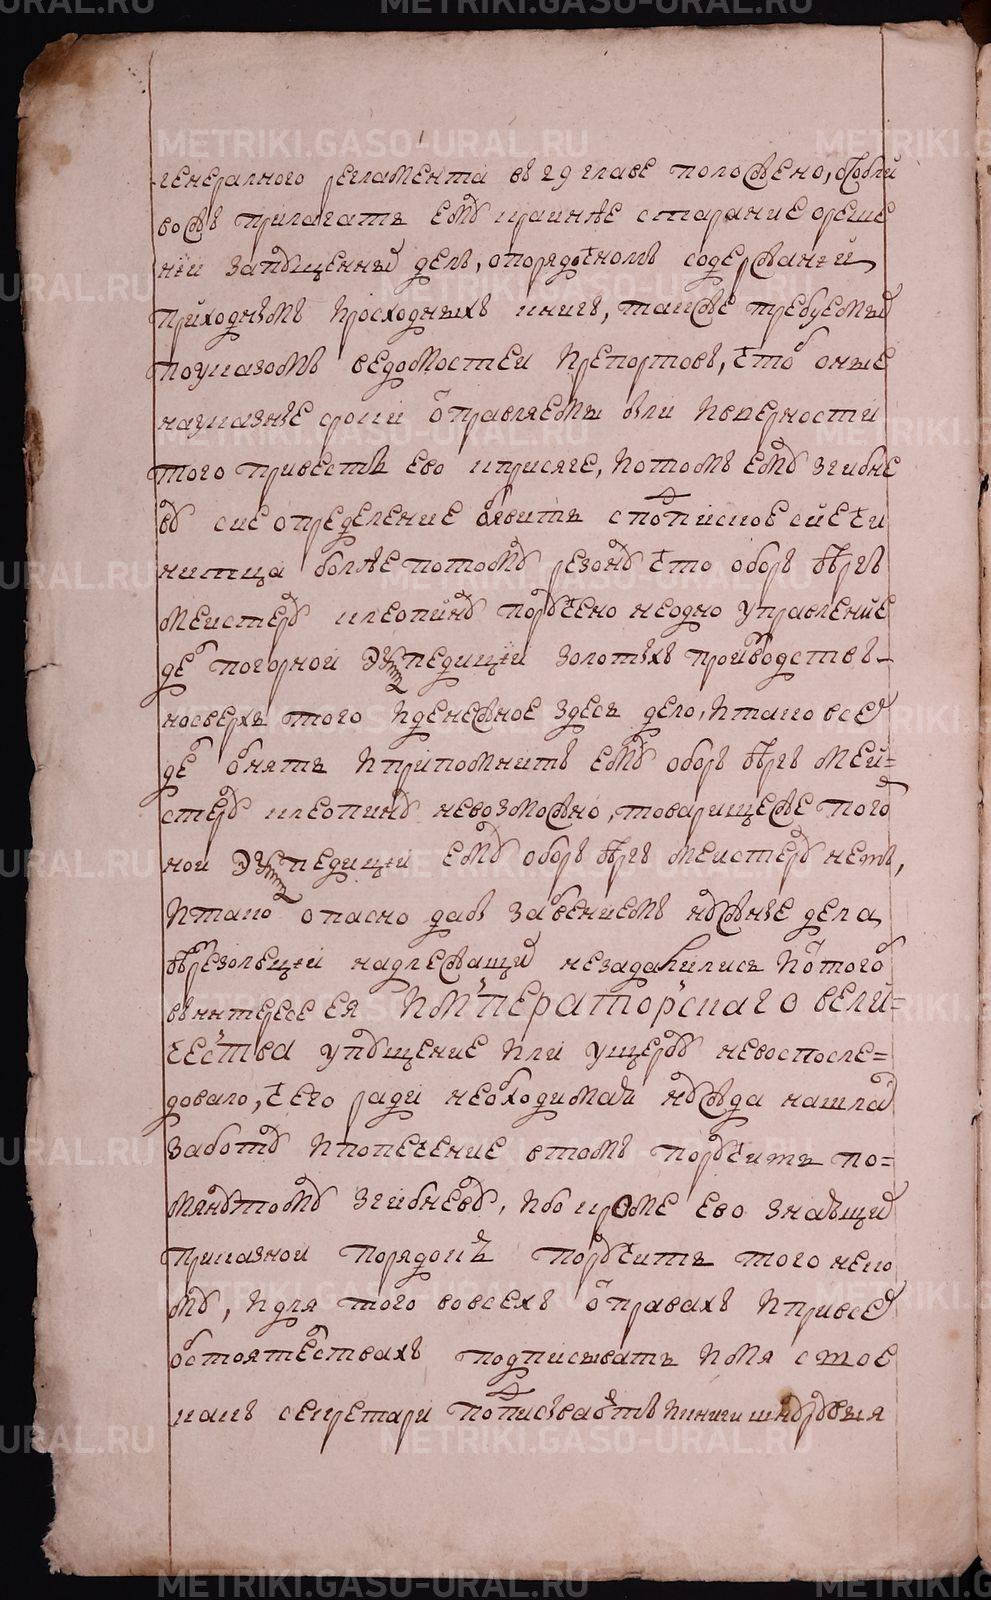 генералного регламента въ 29 главе положено, особли
вожъ прилагать ему крайнѣе старание ореше
нїи запущенныхъ делъ, опорядочномъ содержанїи
приходнымъ ирасходныхъ книгъ, такъже требуемыхъ
поуказомъ ведомостеи ирепортовъ, чтоб оные
науказные сроки отправляемы были иверности
того привесть ево кприсяге, ипотомъ ему згибне
ву сие определение объявить сподпискою сиечи
нитца болѣе потому резону что оберъ бергъ
меистеру клеопину поручено неодно управление
де погорной экъспедицїи золотыхъ производствъ
носверхъ того иденежное здесь дело, итако всех
де обнять иприпомнить ему оберъ бергъ меи=
стеру клеопину невозможно, товарищеже погор
ной экъспедицїи ему оберъ бергъ меистеру нетъ,
итако опасно дабъ забвениемъ нужные дела
врезолюцїи надлежащих незадалнились иоттого
винтересе ея императорскаго вели=
чества упущение или ущербу невоспосле=
довало, чего ради необходимая нужда нашлась
заботу ипопечение втомъ поручить по=
мянутому згибневу, ибо кроме ево знающих
приказной порядокъ поручить того неко
му, идля того вовсехъ отправахъ ипривсех
обстоятествахъ подписывать имя свое
какъ секретари подписываютъ икниги шнуровыя